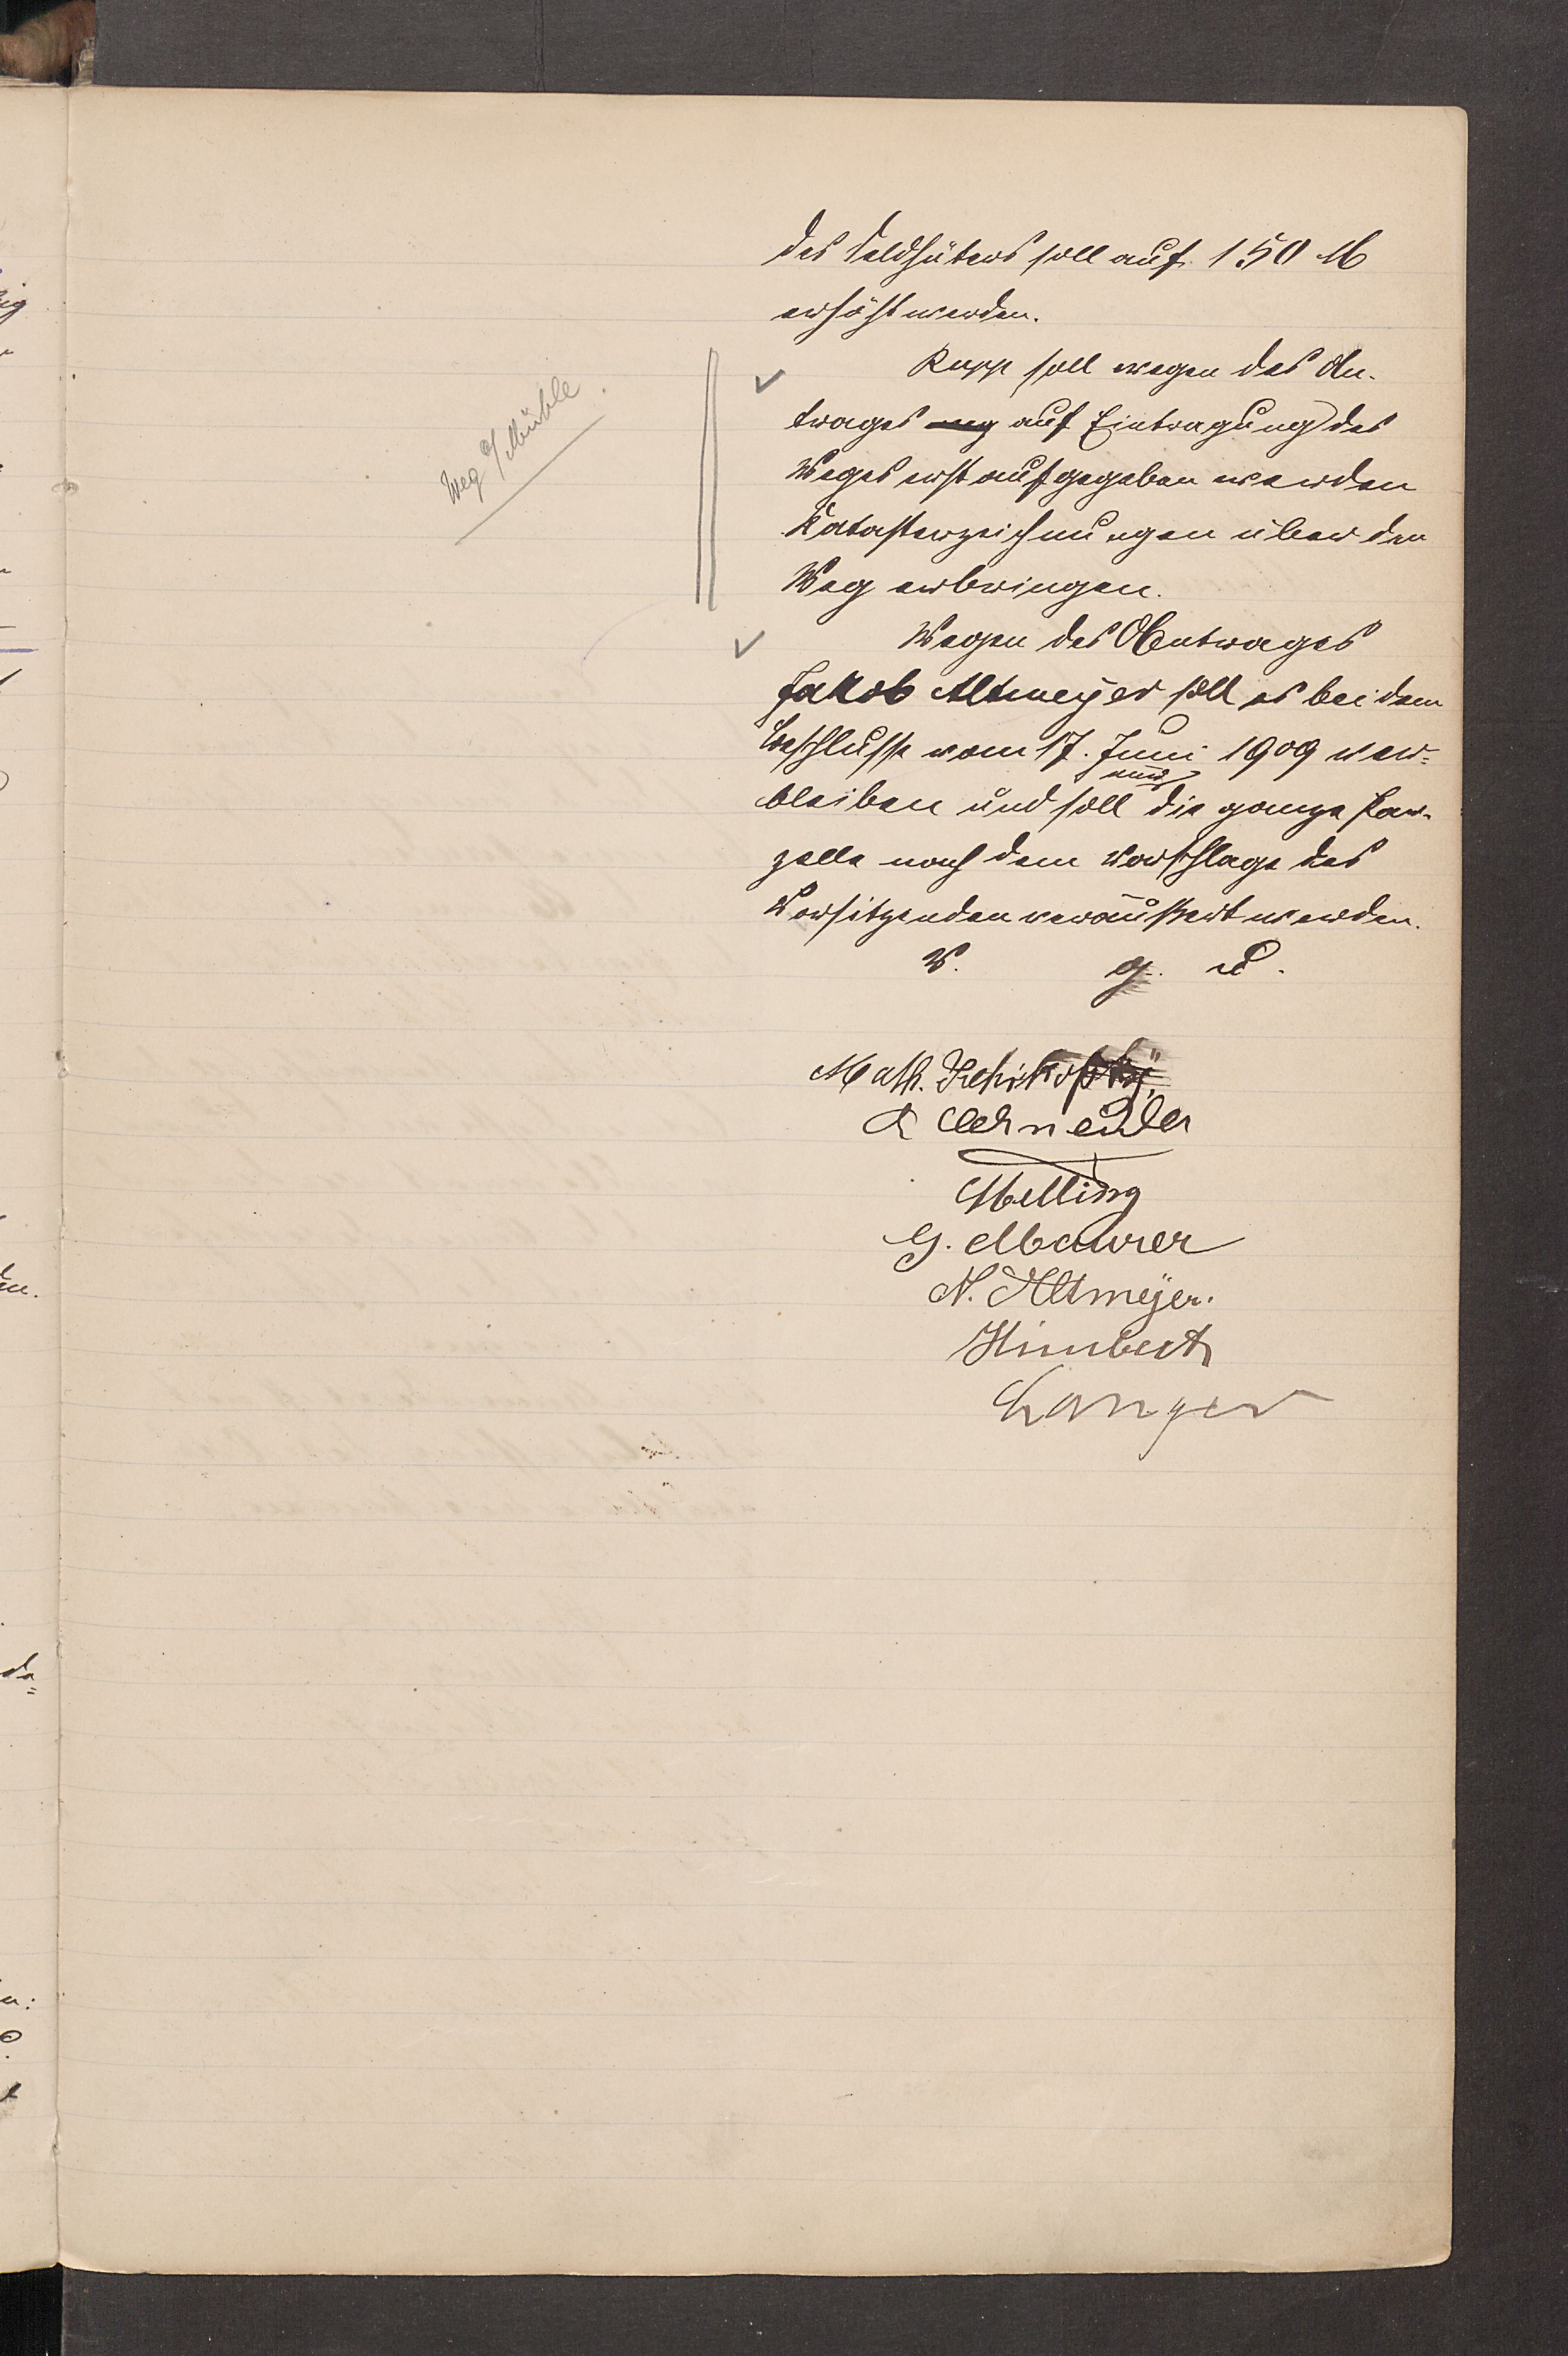 des Feldhüters soll auf 150 M
erhöht werden.
Rupp soll wegen des An-
trages auf Eintragung des
Weges erst aufgegeben werden
Katasterzeichnungen über den
Weg erbringen.
Weg Mühle.
Wegen des Antrages
Jakob Altmeyer soll es bei dem
Beschlusse vom 17. Juni 1909 ver-
bleiben und soll nur die ganze Par-
zelle nach dem Vorschlage des
Vorsitzenden veräußert werden.
V. g. u.
Math.
Schneider
Melling
G. Maurer
N. Altmeÿer.
Himbert
Langer